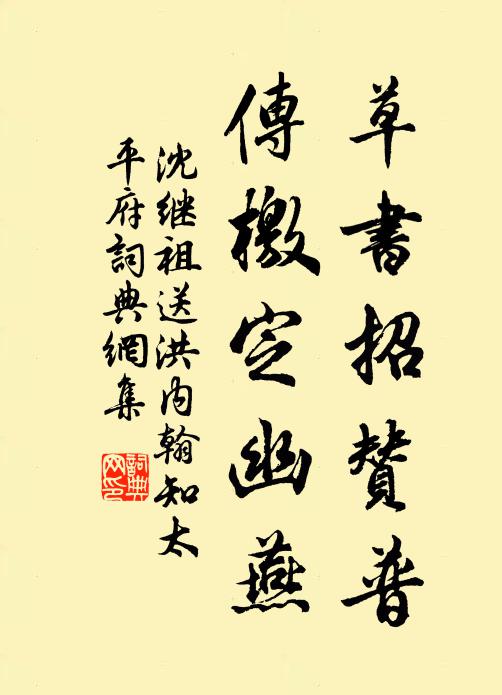 草書招贊普
傳檄定幽燕
沈继祖送洪内翰知太
平府詞典網集
詞典
网印